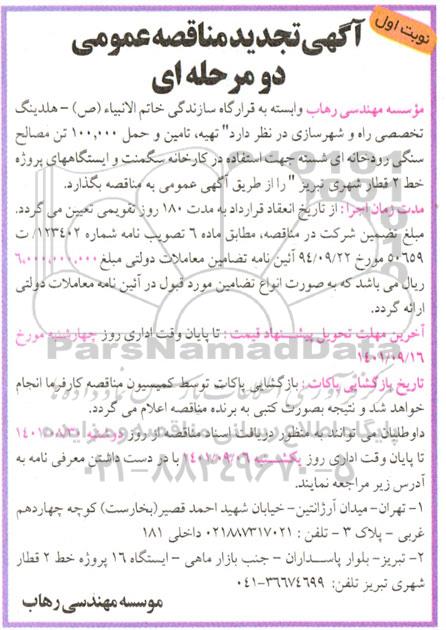 نوبت اول
آگهی تجدید مناقصه عمومی
دو مرحله ای
مؤسسه مهندسی رهاب وابسته به قرارگاه سازندگی خاتم الانبیاء (ص) – هلدینگ
تخصصی راه و شهرسازی در نظر دارد" تهیه، تامین و حمل ۱۰۰,۰۰۰ تن مصالح
سنگی رودخانه ای شسته جهت استفاده در کارخانه سگمنت و ایستگاههای پروژه
خط ۲ قطار شهری تبریز " را از طریق آگهی عمومی به مناقصه بگذارد.
مدت زمان اجرا : از تاریخ انعقاد قرارداد به مدت ۱۸۰ روز تقویمی تعیین می گردد.
مبلغ تضمین شرکت در مناقصه، مطابق ماده ۶ تصویب نامه شماره ۱۲۳۴۰۲/ ت
۵۰۶۵۹ مورخ ۹۴/۰۹/۲۲ آئین نامه تضامین معاملات دولتی مبلغ ۶,۰۰۰,۰۰۰,۰۰۰
ریال می باشد که به صورت انواع تضامین مورد قبول در آئین نامه معاملات دولتی
ارائه گردد.
آخرین مهلت تحویل پیشنهاد قیمت : تا پایان وقت اداری روز چهارشنبه مورخ
۱۴۰۱/۰۹/۱۶
تاریخ بازگشایی پاکات : بازگشایی پاکات توسط کمیسیون مناقصه کارفرما انجام
خواهد شد و نتیجه بصورت کتبی به برنده مناقصه اعلام می گردد.
داوطلبان می توانند به منظور دریافت اسناد مناقصه از روز دوشنبه ۱۴۰۱/۰۸/۳۰
تا پایان وقت اداری روز یکشنبه ۱۴۰۱/۰۹/۰۶ با در دست داشتن معرفی نامه به
آدرس زیر مراجعه نمایند.
۱- تهران- میدان آرژانتین- خیابان شهید احمد قصیر(بخارست) کوچه چهاردهم
غربی – پلاک ۳ - تلفن : ۰۲۱۸۸۷۳۱۷۰۲۱ داخلی ۱۸۱
۲- تبریز- بلوار پاسداران – جنب بازار ماهی – ایستگاه ۱۶ پروژه خط ۲ قطار
شهری تبریز تلفن: ۳۶۶۷۴۶۹۹-۰۴۱
موسسه مهندسی رهاب
ParsNamadData
۰۲۱-۸۸۳۴۹۶۷۰-۵